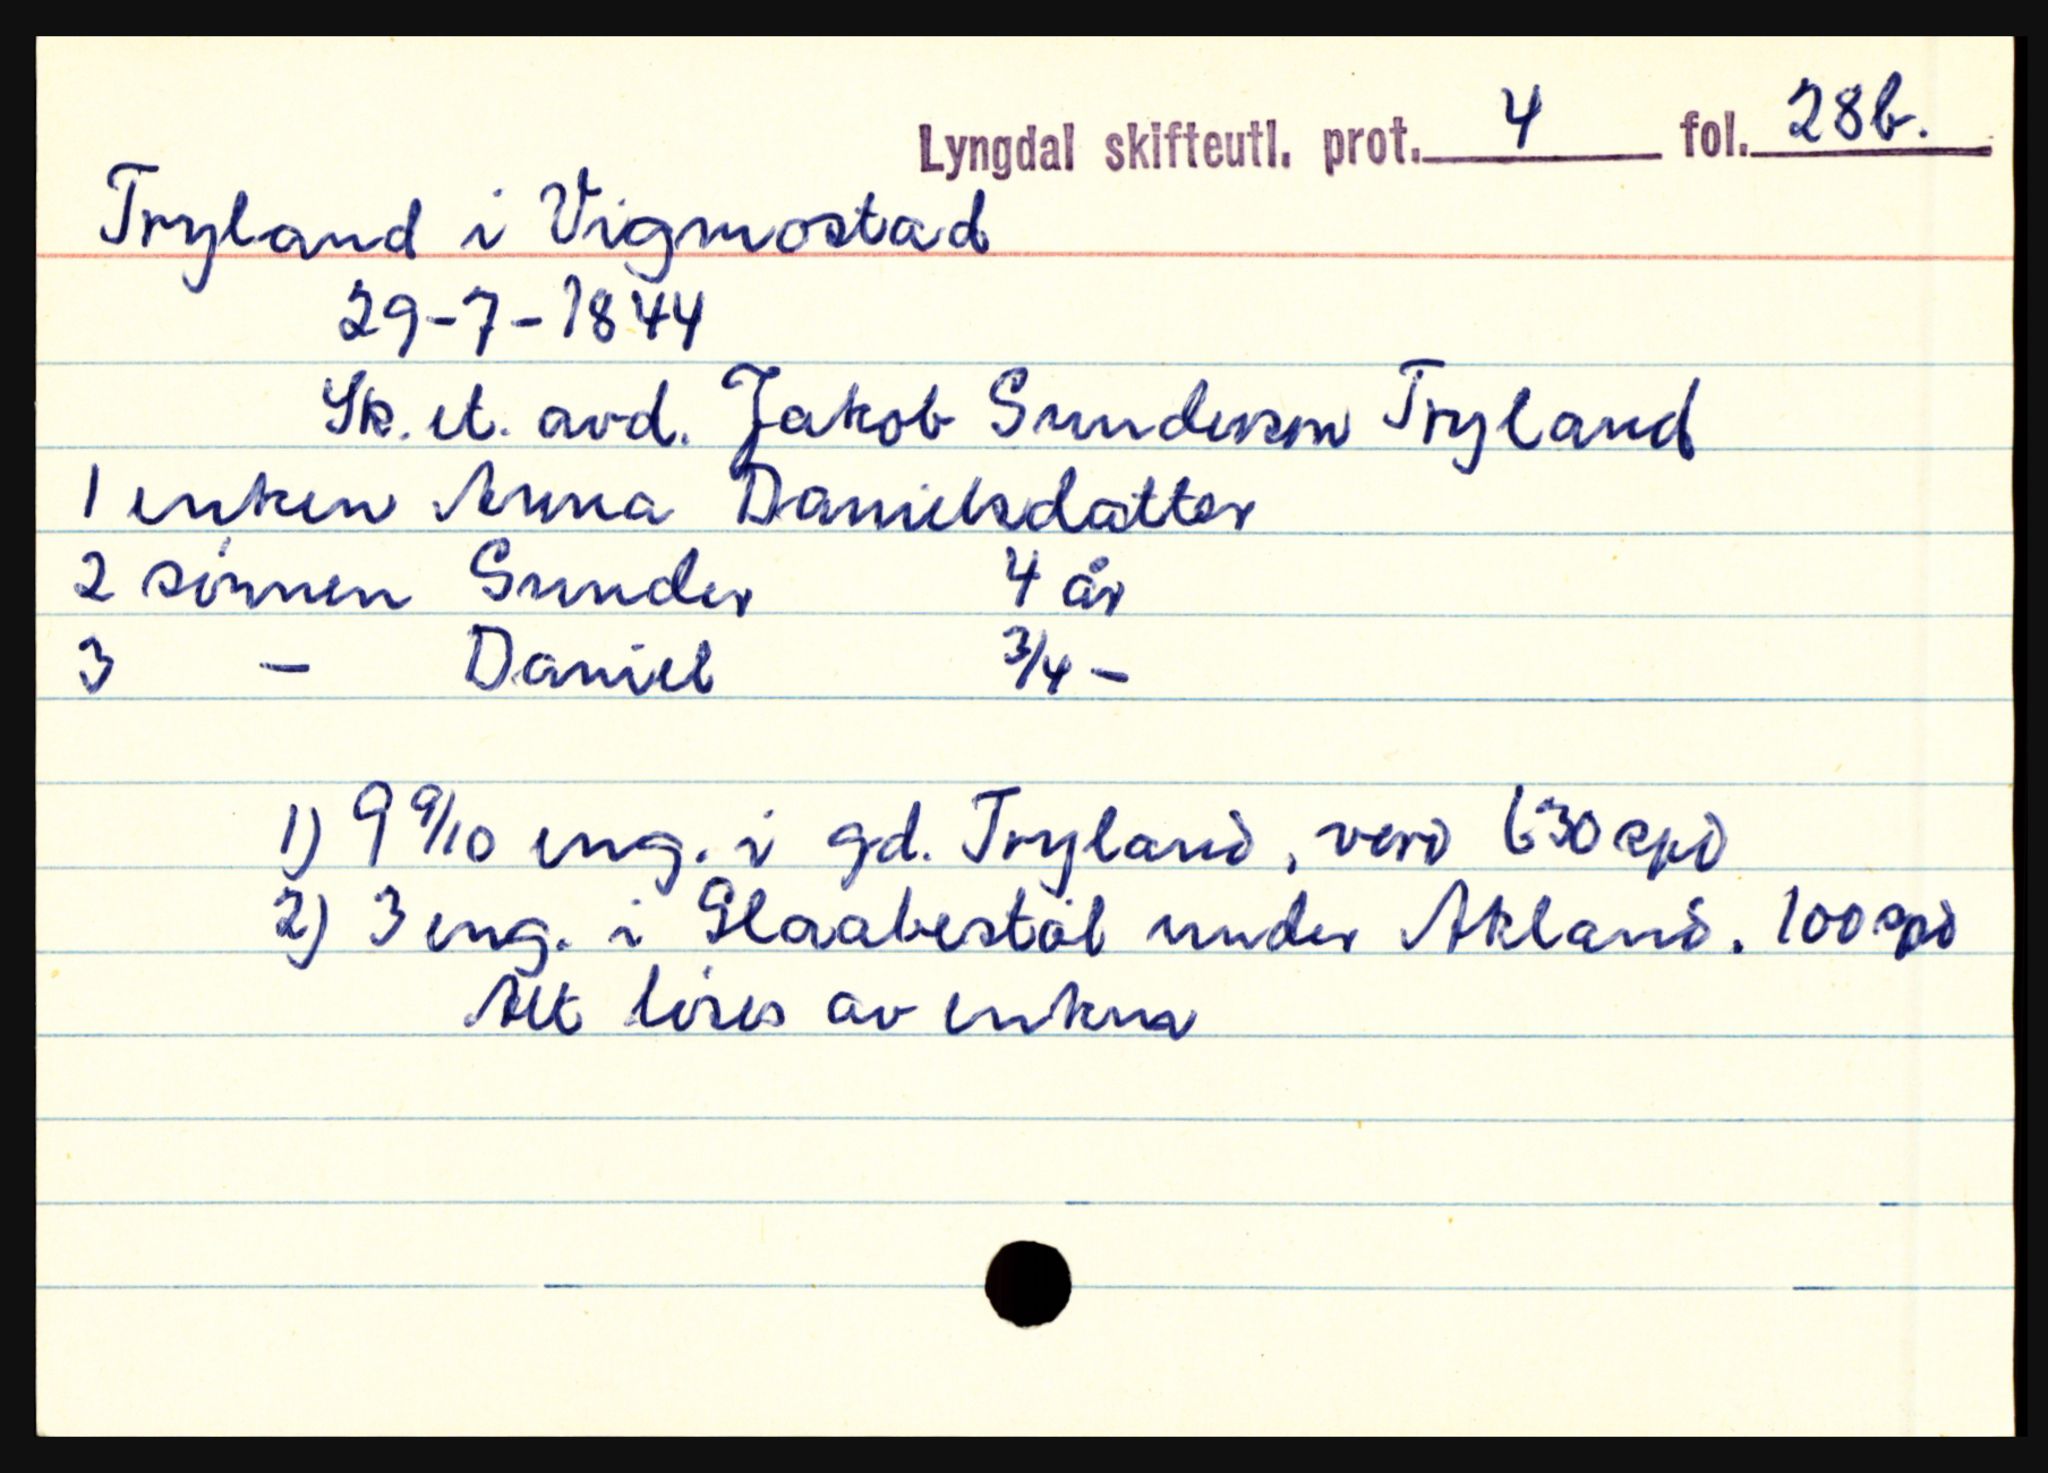 Lyngdal skifteutl. prot. 4 fol. 28b.
Tryland i Vigmostad
29-7-1844
Sk. et. avd. Jakob Sundersen Tryland
1 enken Anna Danielsdatter
2 sønnen Sunder 4 år
3 - Daniel 3/4 -
1) 9 9/10 eng. i gd. Tryland, verd 630 spd
2) 3 eng. i Glaabestøl under Akland. 100 spd
Alt løses av enken